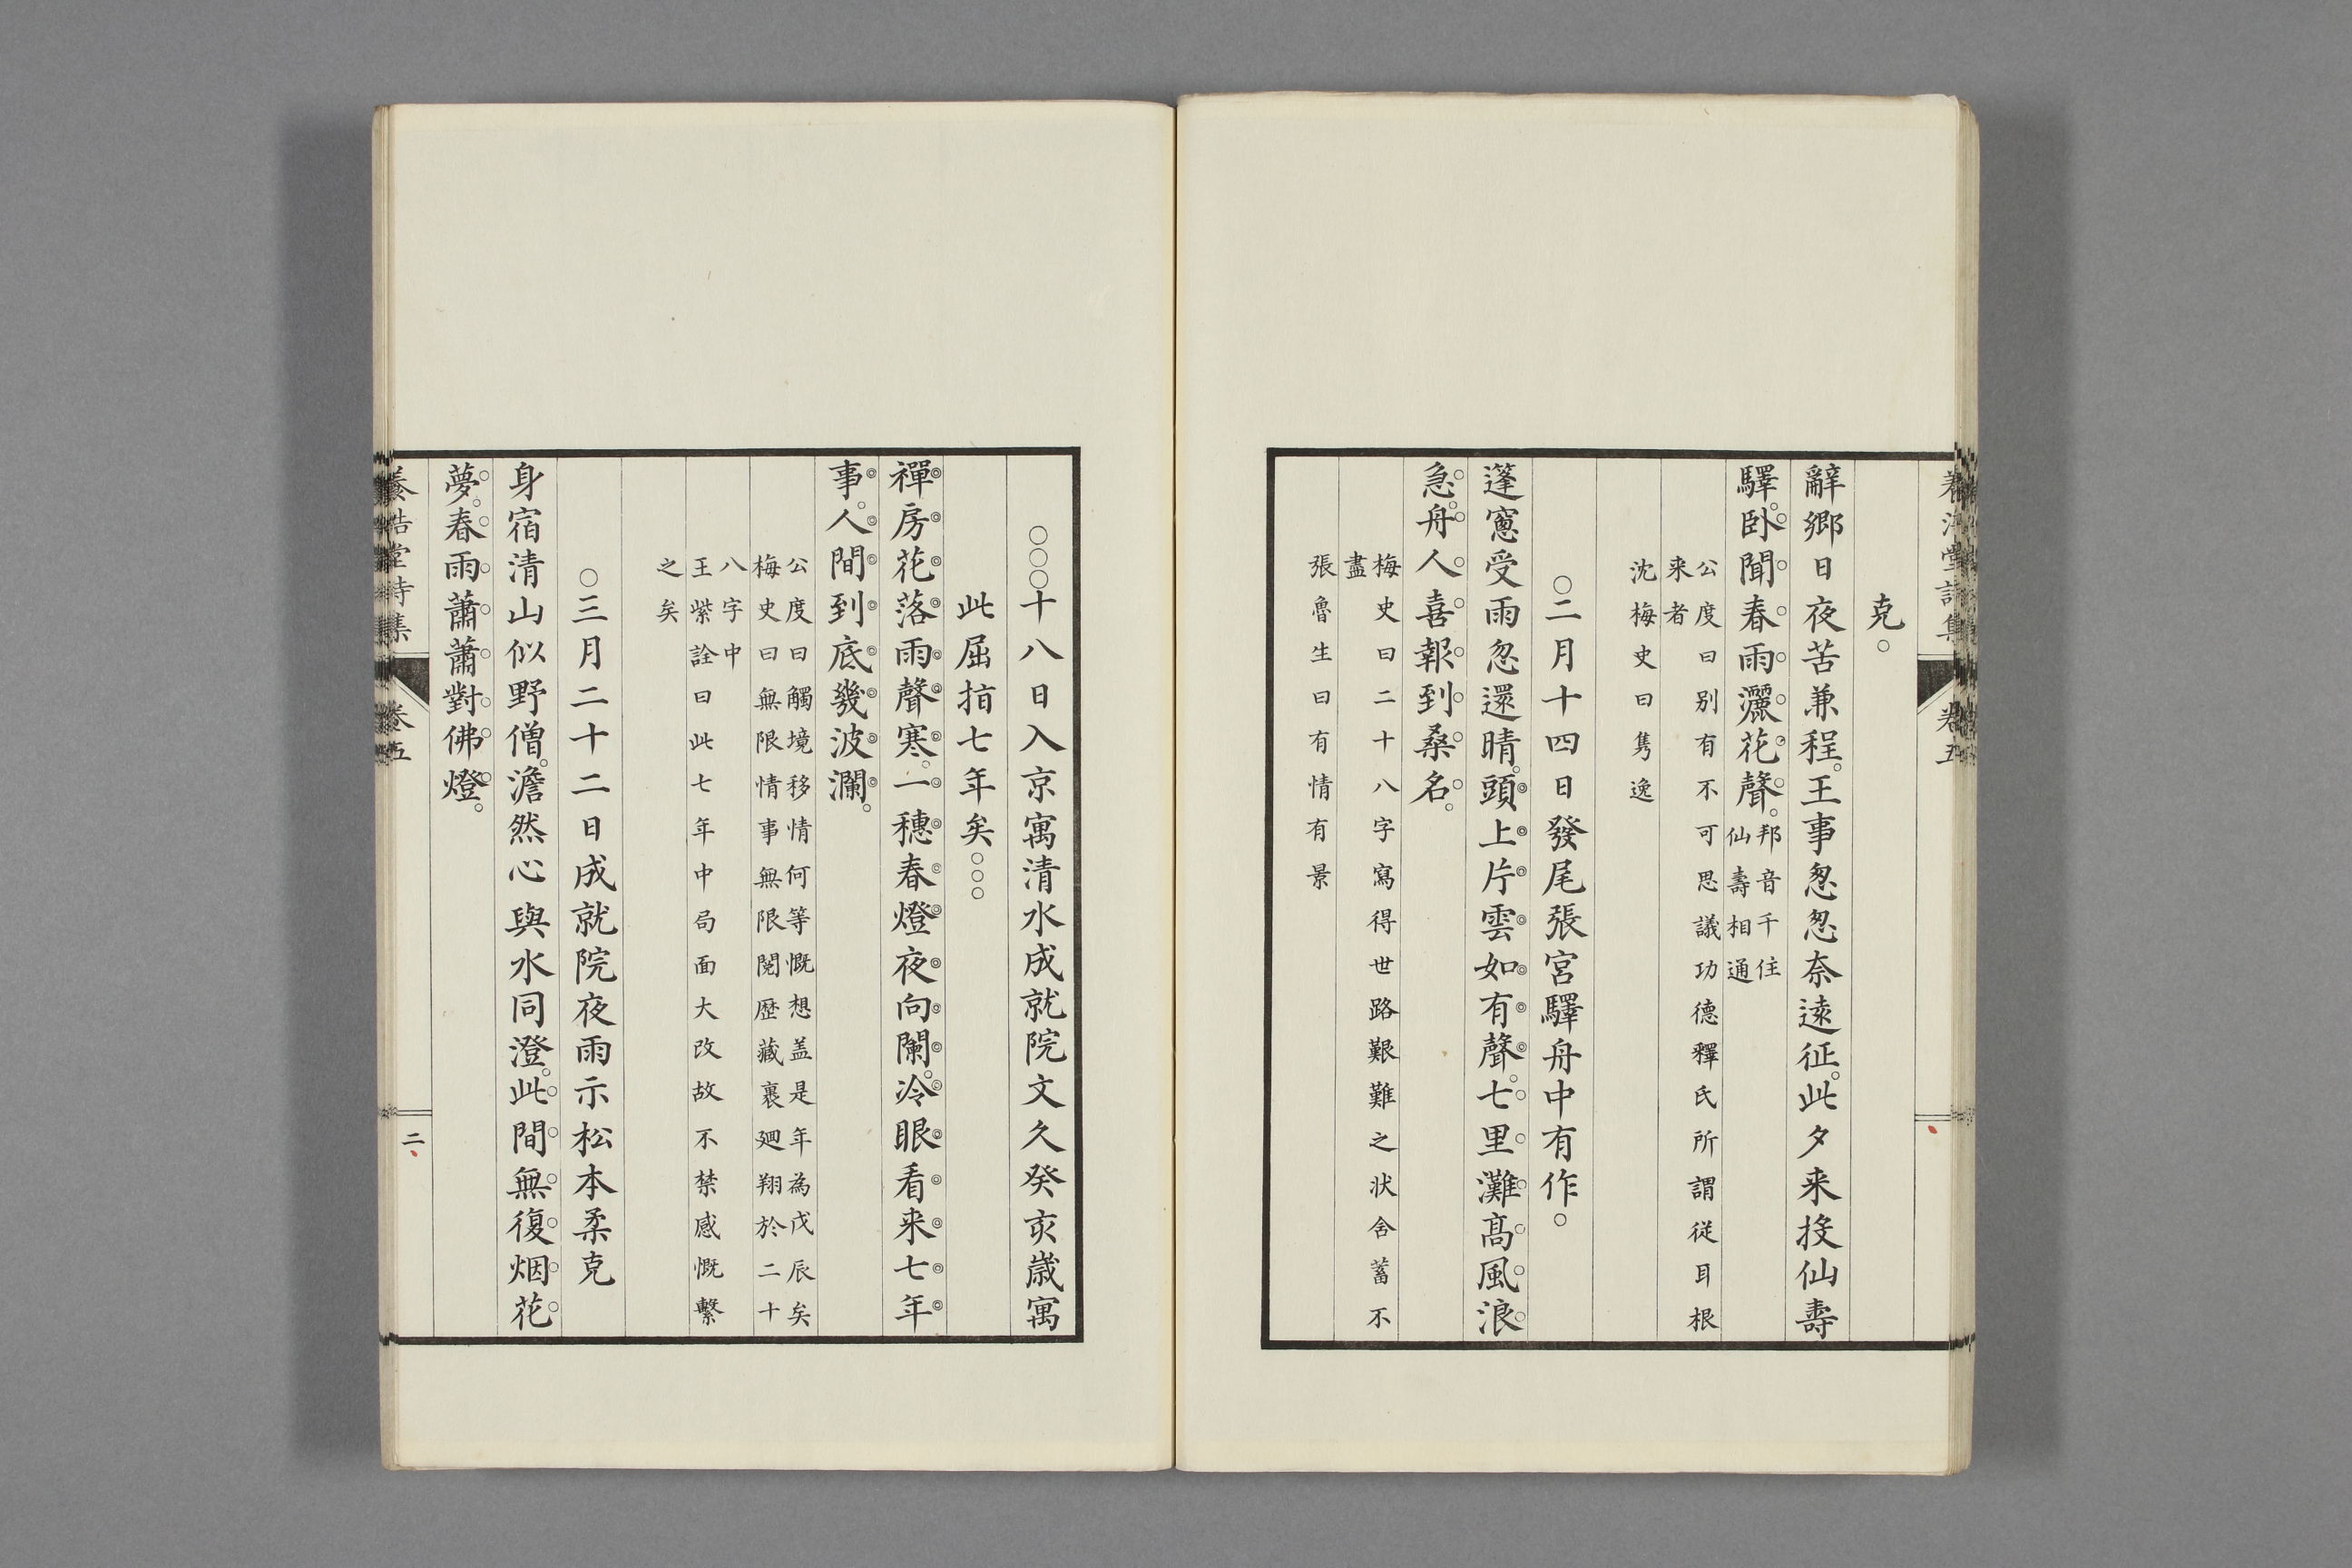 克。
辭鄉日夜苦兼程。王事怱怱奈遠征。此夕来投仙壽
驛。卧聞春雨灑花聲。邦音千住
仙壽相通
公度曰别有不可思議功德釋氏所謂従耳根
来者
沈梅史曰雋逸
○二月十四日發尾張宮驛舟中有作。
蓬窻受雨忽還晴。頭上片雲如有聲。七里灘髙風浪
急。舟人喜報到桑名。
梅史曰二十八字寫得世路艱難之状舍蓄不
盡
張魯生曰有情有景
○○○十八日入京寓清水成就院文久癸亥歳寓
此屈指七年矣○○○
禪房花落雨聲寒。一穗春燈夜向闌。冷眼看来七年
事。人間到底幾波瀾。
公度曰觸境移情何等慨想盖是年為戊辰矣
梅史曰無限情事無限閲歴藏裹廻翔於二十
八字中
王紫詮曰此七年中局面大改故不禁感慨繫
之矣
○三月二十二日成就院夜雨示松本柔克
身宿清山似野僧。澹然心與水同澄。此間無復烟花
夢。春雨蕭蕭對佛燈。
養浩堂詩集 卷五 二